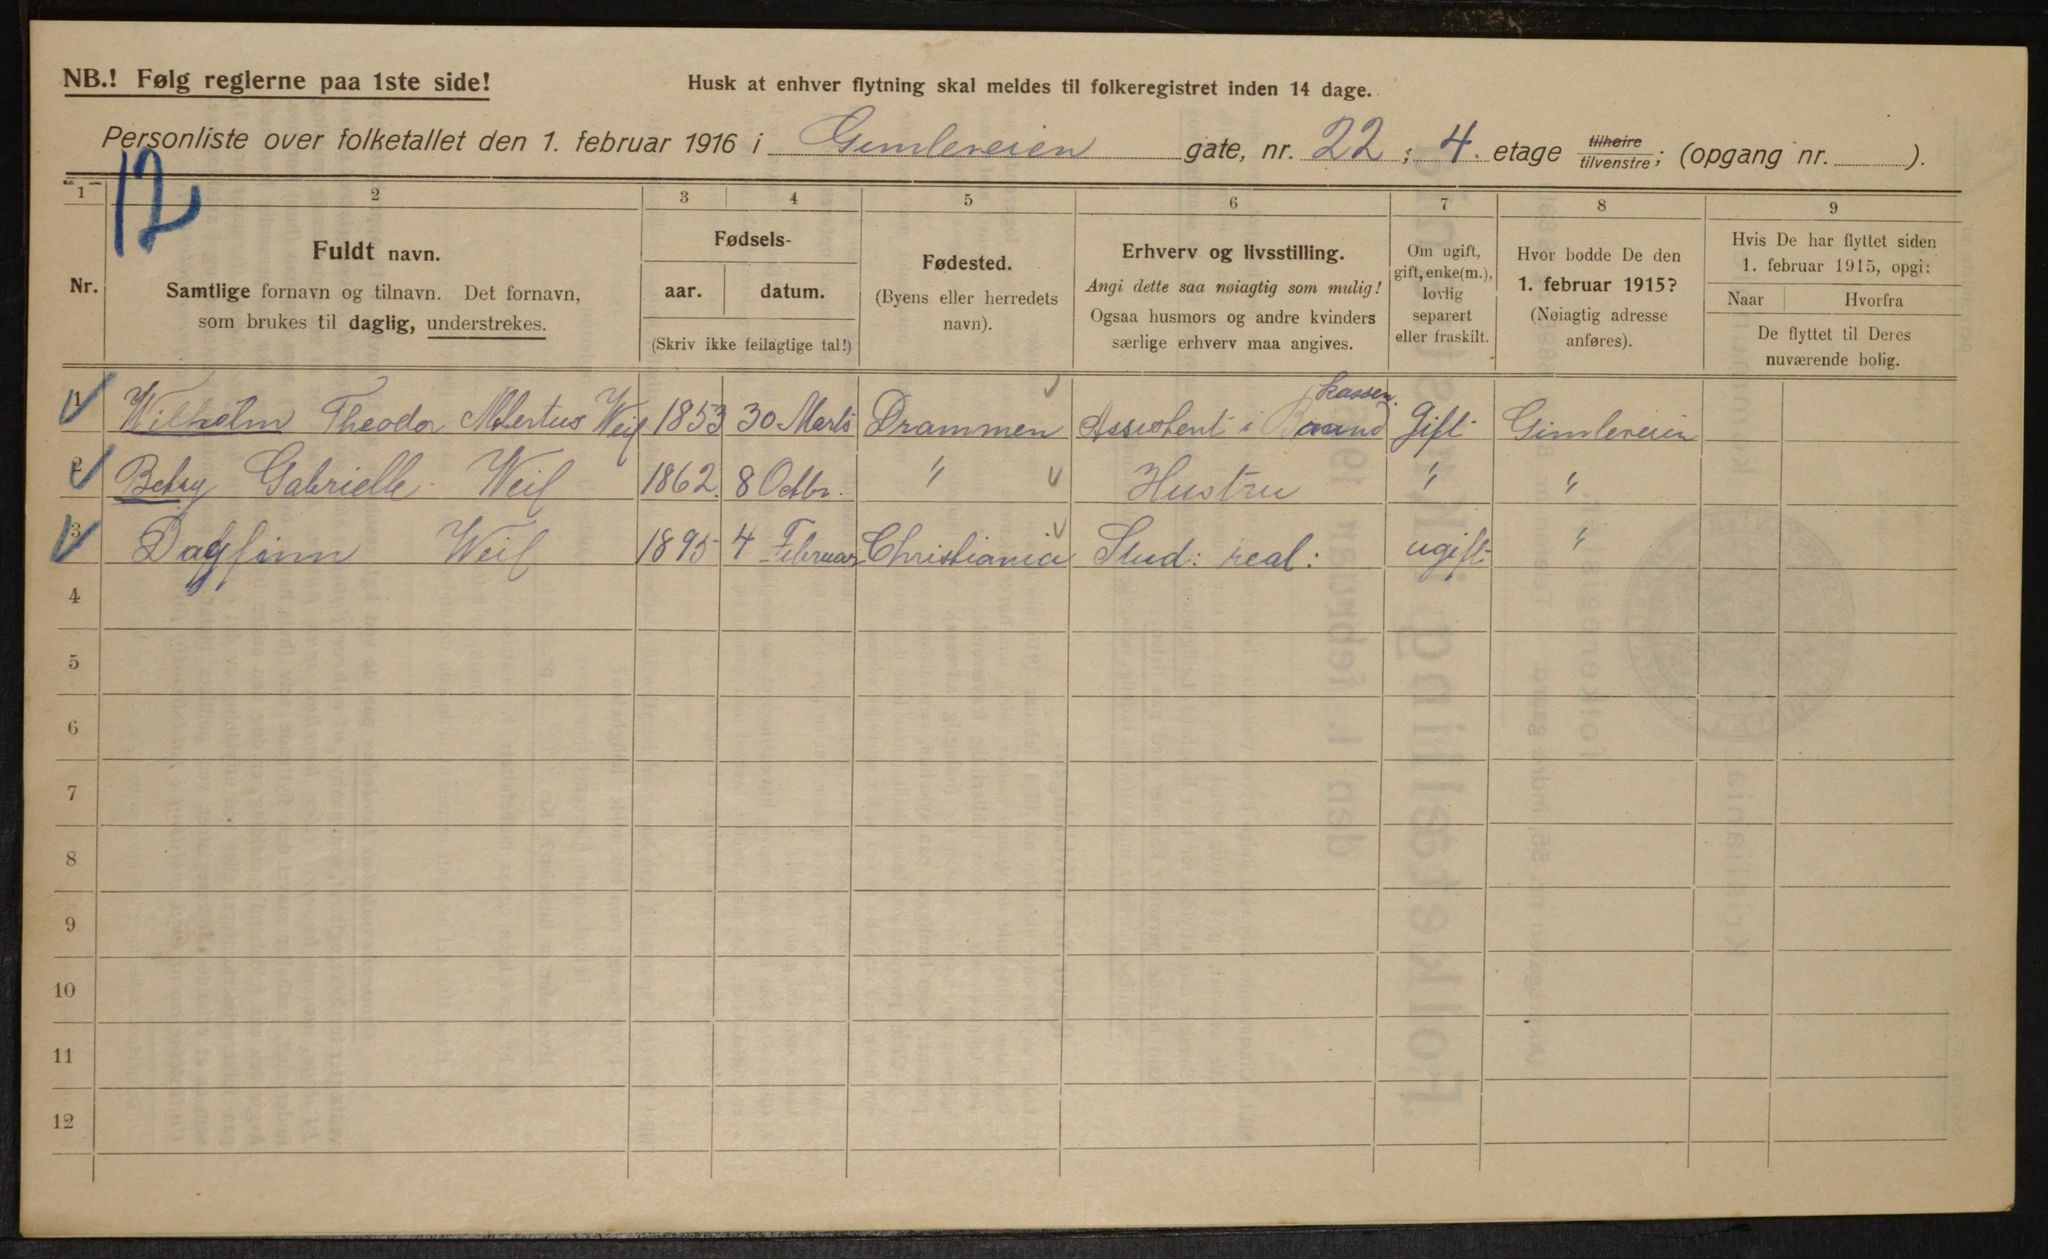 NB.! Følg reglerne paa 1ste side!
Husk at enhver flytning skal meldes til folkeregistret inden 14 dage.
Personliste over folketallet den 1. februar 1916 i Gimleveien gate, nr. 22; 4. etage tilhøire tilvenstre; (opgang nr. ).
12
1 2 3 4 5 6 7 8 9
Nr.
Fuldt navn.
Samtlige fornavn og tilnavn. Det fornavn,
som brukes til daglig, understrekes.
Fødsels-
aar. datum.
(Skriv ikke feilagtige tal!)
Fødested.
(Byens eller herredets
navn).
Erhverv og livsstilling.
Angi dette saa nøiagtig som mulig!
Ogsaa husmors og andre kvinders
særlige erhverv maa angives.
Om ugift,
gift, enke(m.),
lovlig
separert
eller fraskilt.
Hvor bodde De den
1. februar 1915?
(Nøiagtig adresse
anføres).
Hvis De har flyttet siden
1. februar 1915, opgi:
Naar Hvorfra
De flyttet til Deres
nuværende bolig.
kassen.
1 Wilhelm Theodor Albertus Weif 1853 30 Marts Drammen Assistent i Gift Gimleveien
2 Betsy Gabrielle Weif 1862. 8 Octbr. " Hustru " "
3 Dagfinn Weif 1895 4 Februar Christiania Stud: real: ugift "
4
5
6
7
8
9
10
11
12